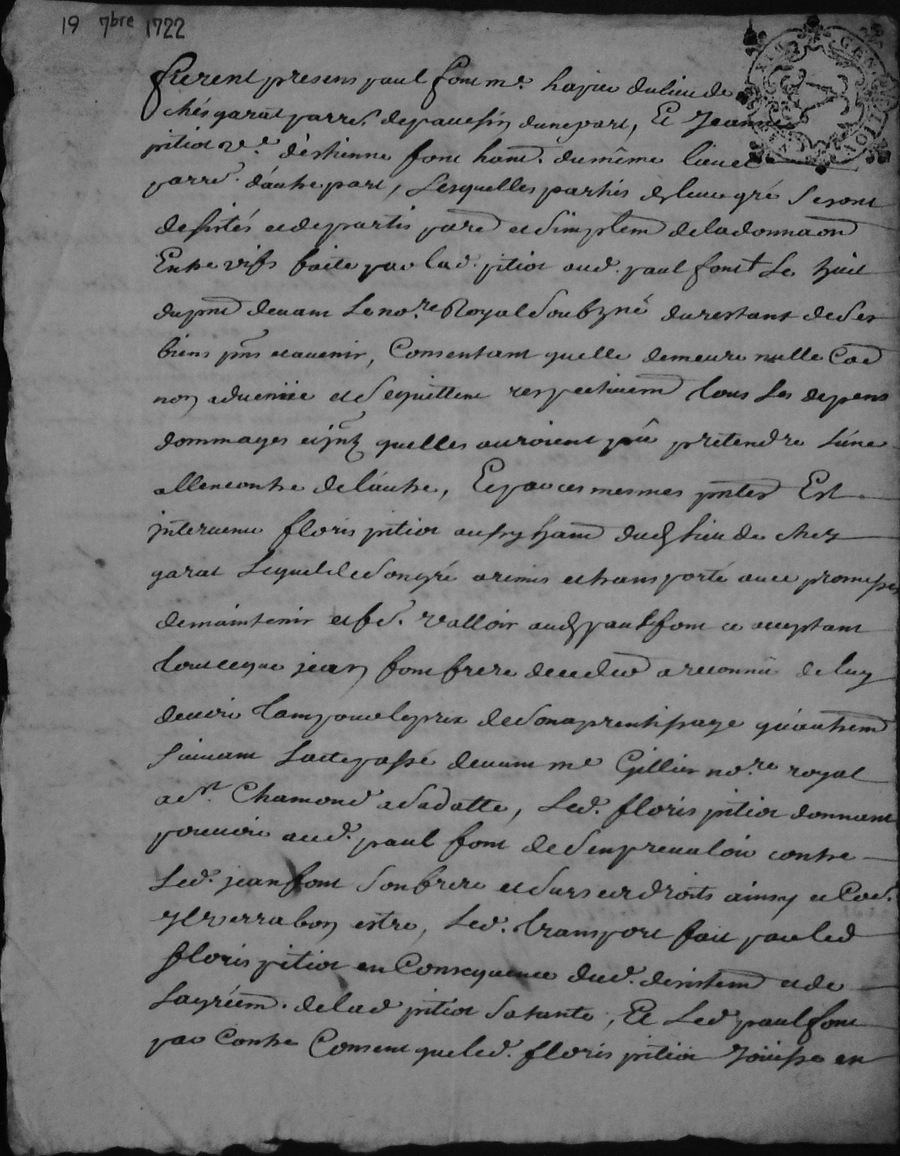 19 7bre 1722
furent presens paul font me. du lieu de
chés garat parre. de pauesin d'une part, Et Jeanne
pitiot ve. d'estienne font hant. du même lieu et
parre. d'autre part, Lesquelles parties de leur gré se sont
desistés et departis et simplem de la donnaon
Entre vifs faite par lad. pitiot aud. paul font Le huit
du pnt devant Le nore. Royal Soubzné du restant de Ses
biens pns et avenir, Consentant quelle demeure nulle
non advenüe et Se quittent respectivem tous Les depens
dommages et quelles auroient pû pretendre L'une
allencontre de l'autre, Et par ces mesmes Est
intervenu floris pitiot aussy hant dud lieu de chez
garat Lequel de Son gré a remis et transporté avec promesse
de maintenir et valloir aud paul font ce acceptant
tout ce que jean font frere a reconnû de luy
devoir tant pour le prix de Son aprentissage qu'autrem
Suivant L'acte passé devant me Gillier nore. royal
a St. Chamond a Sa datte, Led. floris pitiot donnant
pouvoir aud. paul font de S'en prevaloir contre
Led. jean font Son frere et Sur Ses droits ainsy
verra bon estre, Led. transport fait par led
floris pitiot en Consequence dud. desistem et de
L'agréem. de lad pitiot Sa tante, Et Led paul font
par Contre Consent que led. floris pitiot Joüisse en